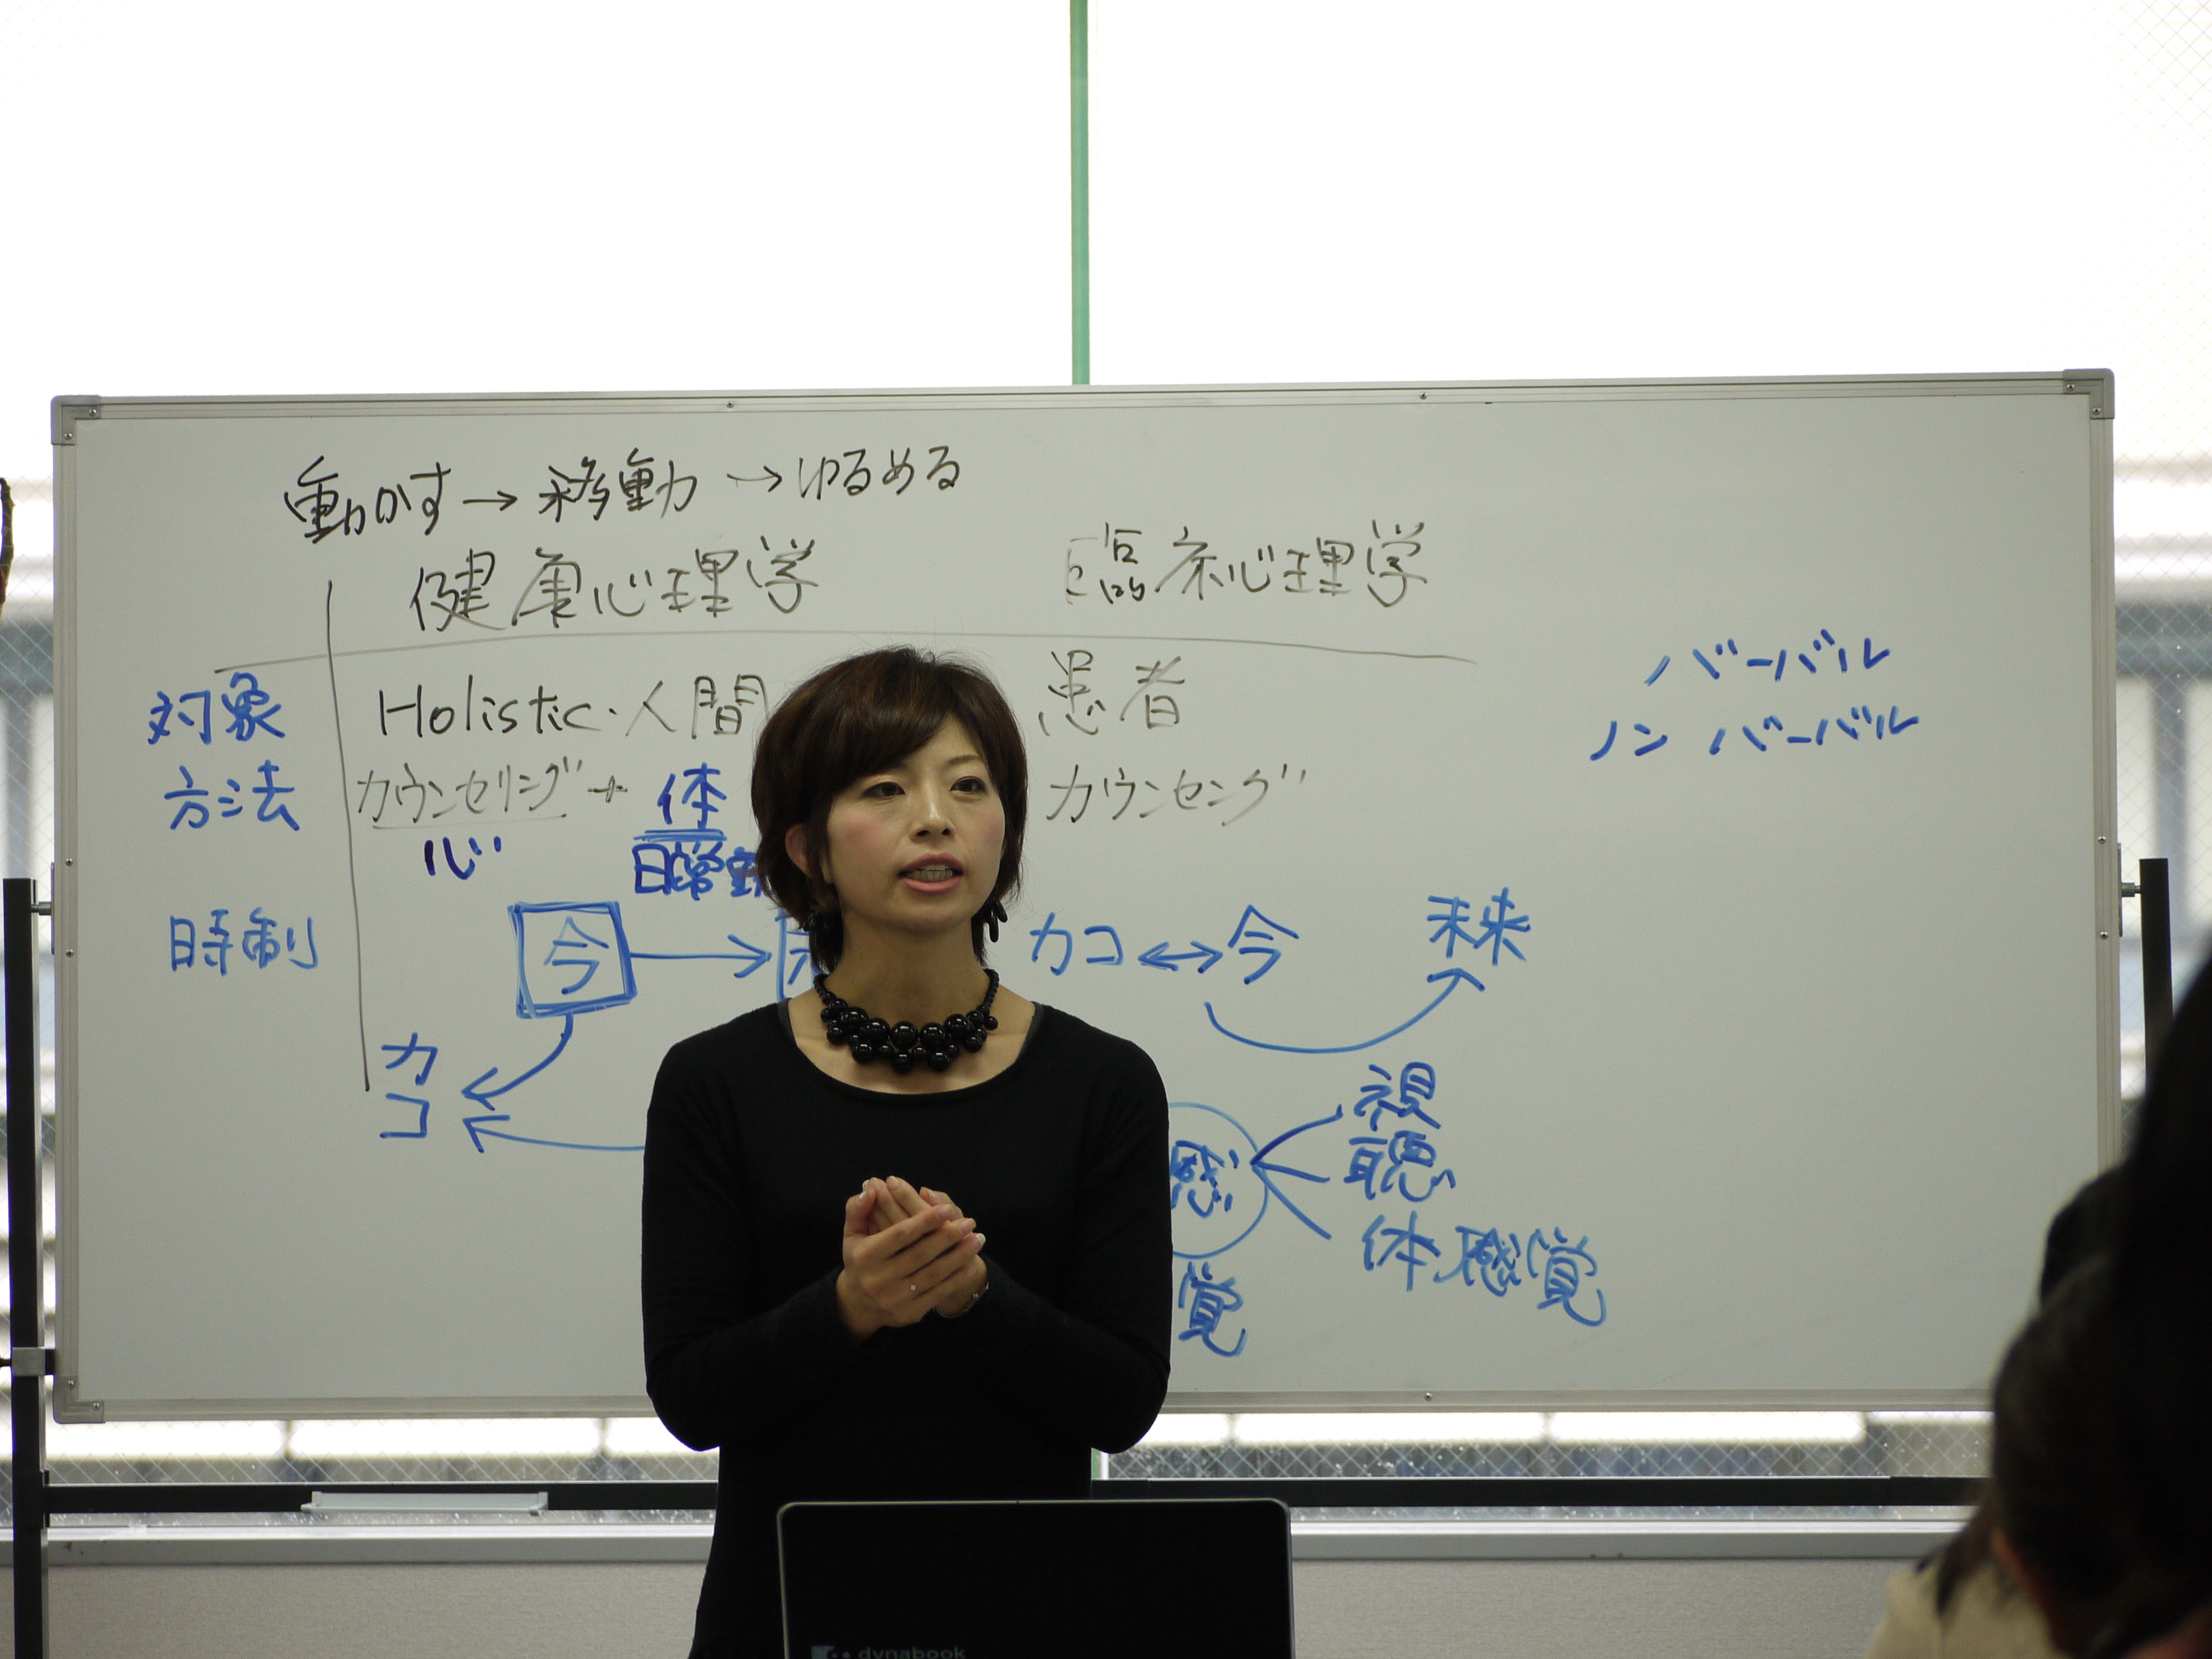 動かす→移動→ゆるめる
健康心理学 臨床心理学
対象 Holistic・人間 患者
方法 カウンセリング+体 カウンセング
心 日常
時制 今→ カコ↔今 未来
カコ
バーバル
ノンバーバル
感覚
視
聴
体感覚
dynabook